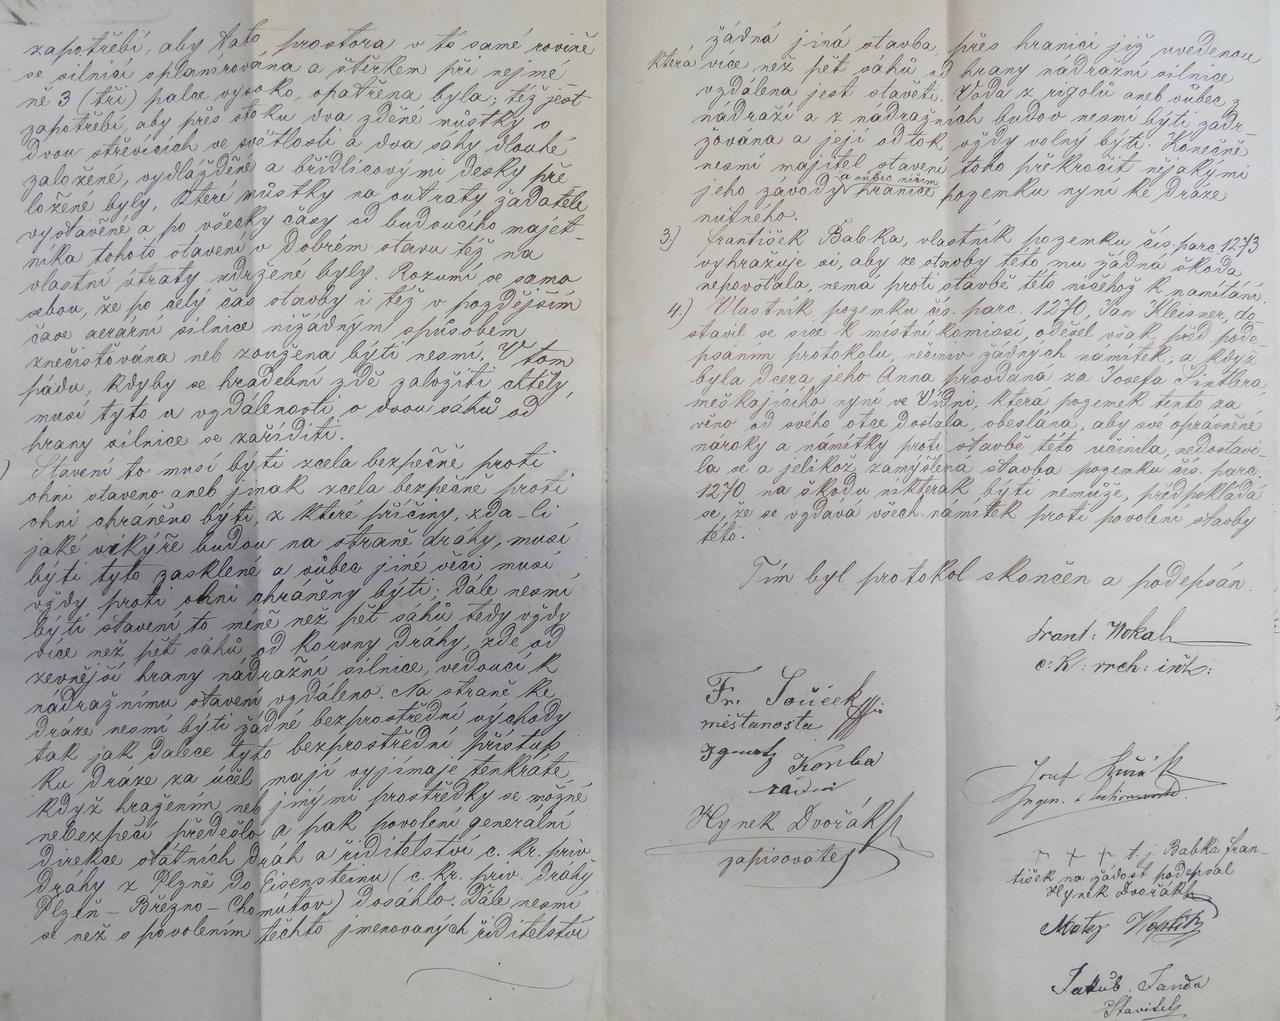 zapotřebí, aby tato prostora v té samé rovině
se silnicí splanírována a štěrkem při nejmé
ně 3 (tři) palce vysoko, opatřena byla; též jest
zapotřebí, aby přes stoku dva zděné můstky o
dvou střevících ve světlosti a dva sáhy dlouhé
založené, vydlážděné a břidlicovými desky pře
ložené byly, kteří můstky na outraty žadatele
vystavěné a po všecky časy od budoucího majet-
níka tohoto stavení v dobrém stavu též na
vlastní útraty udržené byly. Rozumí se samo
sebou, že po celý čas stavby i též v pozdějším
čase aerární silnice nižádným spůsobem
znečistována neb zoužena býti nesmí. V tom
pádu, kdyby se hradební zdě založiti chtěly,
musí tyto v vzdálenosti o dvou sáhů od
hrany silnice se zaříditi.
) Stavení to musí býti zcela bezpečně proti
ohni staveno aneb jinak zcela bezpečně proti
ohni chráněno býti, z které příčiny, zda-li
jaké vikýře budou na straně dráhy, musí
býti tyto zasklené a vůbec jiné věci musí
vždy proti ohni chráněny býti; dále nesmí
býti stavení to méně než pět sáhů tedy vždy
více než pět sáhů od koruny dráhy, zde od
zevnější hrany nádražní silnice, vedoucí k
nádražnímu stavení vzdáleno. Na straně ke
dráze nesmí býti žádné bezprostřední východy
tak jak dalece tyto bezprostřední přístup
ku dráze za účel mají vyjímaje tenkráte
když hražením neb jinými prostředky se možné
nebezpečí předešlo a pak povolení generální
direkce státních drah a řiditelství c. kr. priv.
dráhy z Plzně do Eisensteinu (c. kr. priv. dráhy
Plzeň - Březno - Chomútov) dosáhlo. Dále nesmí
se než s povolením těchto jmenovaných řiditelství
žádná jiná stavba, přes hranici již uvedenou
která více než pět sáhů od hrany nádražní silnice
vzdálena jest stavěti. Voda z rigolů aneb vůbec z
nádraží a z nádražních budov nesmí býti zadr-
žována a její odtok vždy volný býti. Konečně
nesmí majitel stavení toho překročit nějakými
a vůbec ničím
jeho závody hranice pozemku nyní ke dráze
nutného.
3.) František Babka, vlastník pozemku čís. parc 1273
vyhražuje si, aby ze stavby této mu žádná škoda
nepovstala, nemá proti stavbě této ničehož k namítání.
4.) Vlastník pozemku čís. parc. 1270, Jan Kleisner, do
stavil se sice k místní komissi, odešel však před pode-
psáním protokolu, nečiniv žádných námitek, a když
byla dcera jeho Anna provdaná za Josefa Šintlera
meškajícího nyní ve Vídni, která pozemek tento za
věno od svého otce dostala, obeslána, aby své oprávněné
nároky a námitky proti stavbě této učinila, nedostavi-
la se a jelikož zamýšlená stavba pozemku čís. parc.
1270 na škodu nikterak býti nemůže, předpokládá
se, že se vzdává všech námitek proti povolení stavby
této.
Tím byl protokol skončen a podepsán.
Frant. Nokal
c: k: vrch: inž:
Fr. Souček
měšťanosta
Ignatz Korba
radní
Josef
Hynek Dvořák
zapisovatel
+ + + t. j. Babka Fran-
tišek na žádost podepsal
Hynek Dvořák
Matěj
Jakub Janda
Stavitel